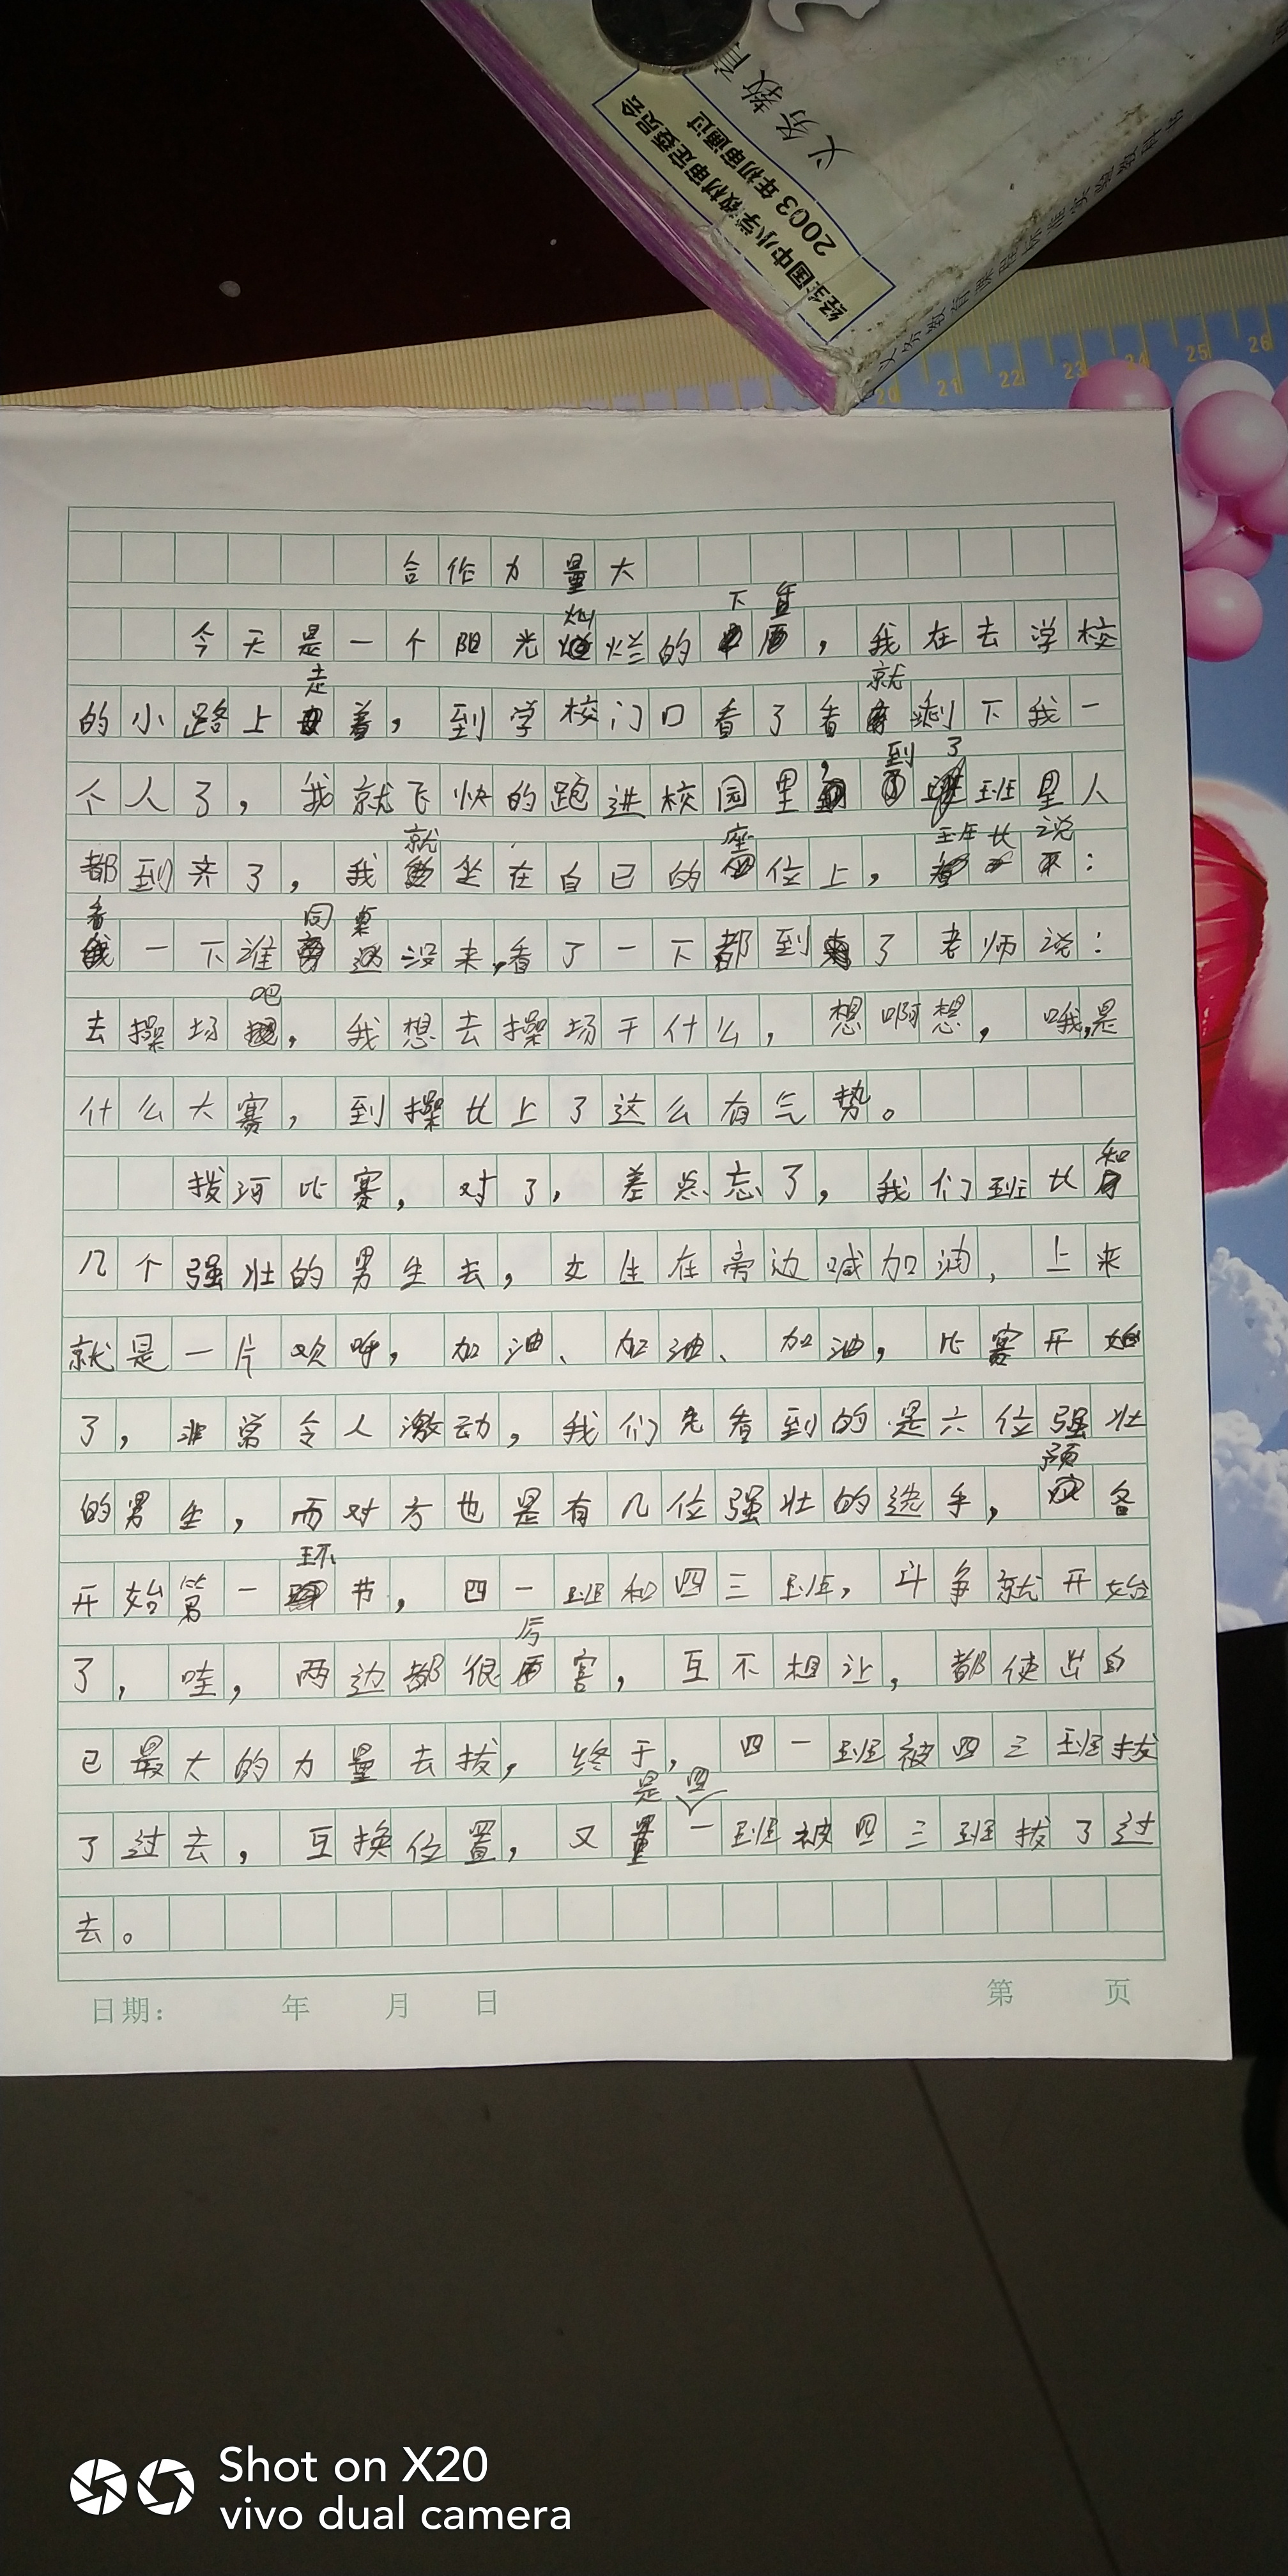 义务教育
经全国中小学教材审定委员会
2003年初审通过
21 22 23 24 25 26
合作力量大
今天是一个阳光灿烂的下午，我在去学校
的小路上走着，到学校门口看了看就剩下我一
个人了，我就飞快的跑进校园里，到了班里人
都到齐了，我就坐在自己的座位上，班长说：
看一下谁同桌没来，看了一下都到了老师说：
去操场吧，我想去操场干什么，想啊想，哦，是
什么大赛，到操比上了这么有气势。
拔河比赛，对了，差点忘了，我们班比和
几个强壮的男生去，女生在旁边喊加油，上来
就是一片欢呼，加油、加油、加油，比赛开始
了，非常令人激动，我们先看到的是六位强壮
的男生，而对方也是有几位强壮的选手，预备
开始第一环节，四一班和四三班，斗争就开始
了，哇，两边都很厉害，互不相让，都使出自
己最大的力量去拔，终于，四一班被四三班拔
了过去，互换位置，又是四一班被四三班拔了过
去。
日期： 年 月 日 第 页
Shot on X20
vivo dual camera